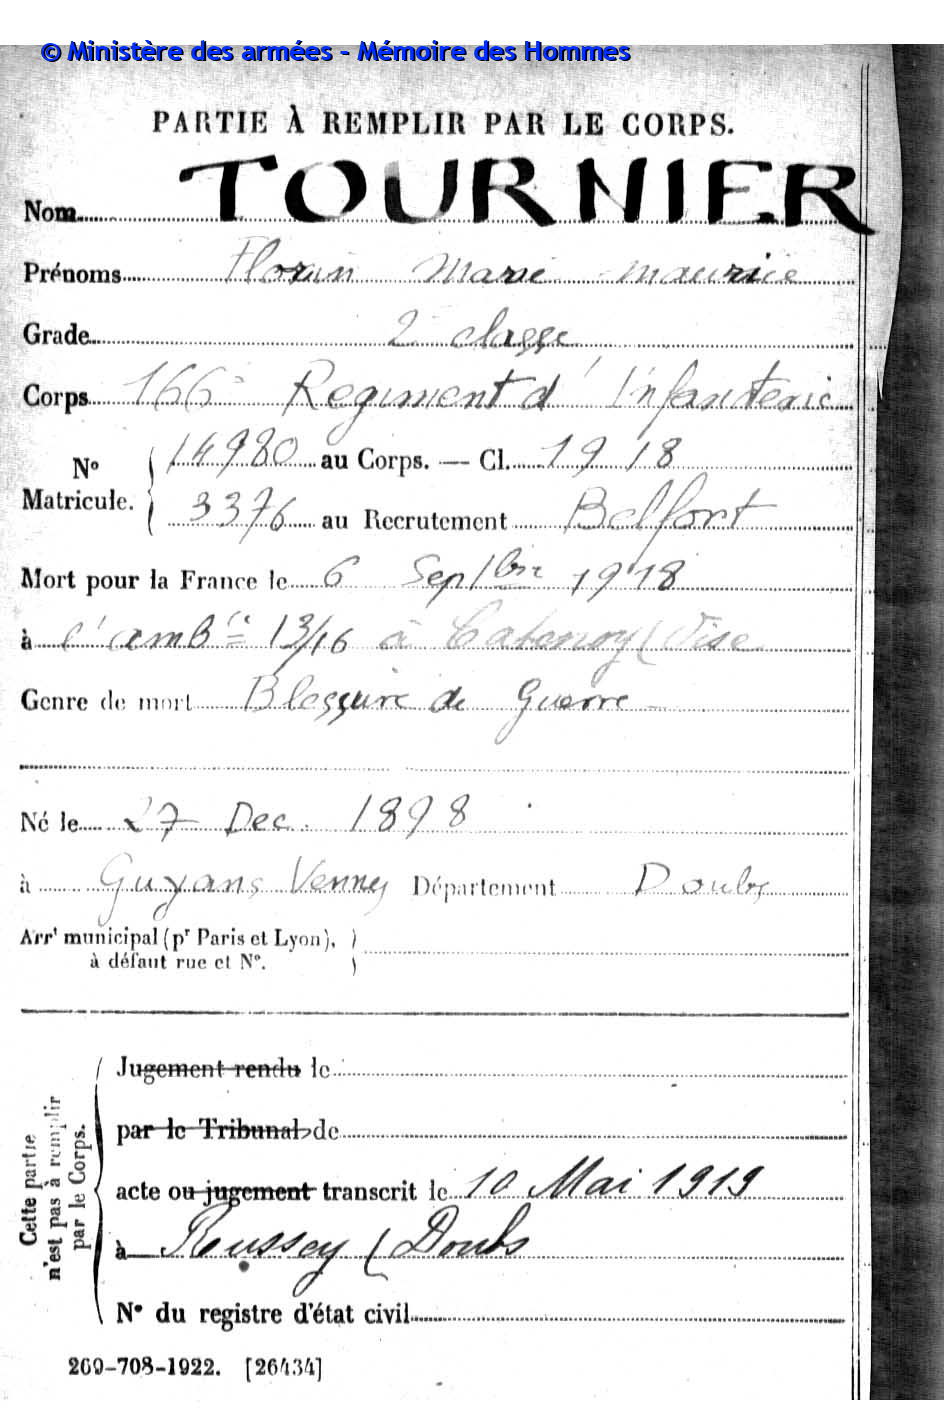 © Ministère des armées - Mémoire des Hommes
PARTIE À REMPLIR PAR LE CORPS.
Nom TOURNIER
Prénoms Florin Marie Maurice
Grade 2e classe
Corps 166e Régiment d'Infanterie
No Matricule. 14980 au Corps. — Cl. 1918
3376 au Recrutement Belfort
Mort pour la France le 6 Septbre 1918
à l'ambce 13/16 à Catenoy (Oise
Genre de mort Blessure de Guerre
Né le 27 Dec. 1898
à Guyans Vennes Département Doubs
Arrt municipal (pr Paris et Lyon),
à défaut rue et No.
Cette partie
n'est pas à remplir
par le Corps.
Jugement rendu le
par le Tribunal de
acte ou jugement transcrit le 10 Mai 1919
à (Doubs
No du registre d'état civil
269-708-1922. [26434]